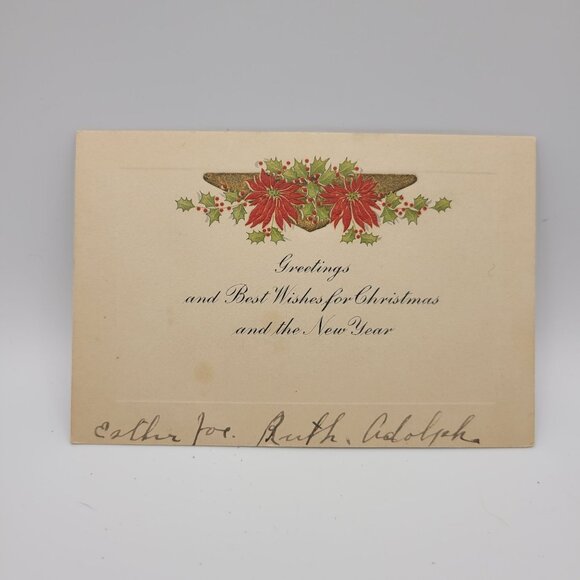 Greetings
and Best Wishes for Christmas
and the New Year
Esther Joe. Ruth. Adolph.